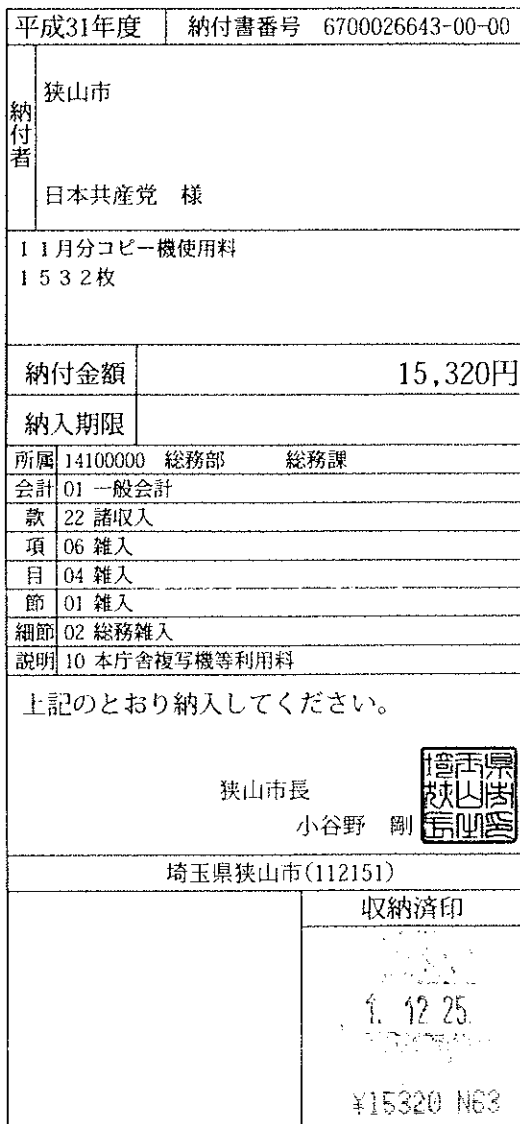 平成31年度 納付書番号 6700026643-00-00
納付者
狭山市
日本共産党 様
11月分コピー機使用料
1532枚
納付金額 15,320円
納入期限
所属 14100000 総務部 総務課
会計 01 一般会計
款 22 諸収入
項 06 雑入
目 04 雑入
節 01 雑入
細節 02 総務雑入
説明 10 本庁舎複写機等利用料
上記のとおり納入してください。
狭山市長
小谷野 剛
埼玉県狭山市(112151)
収納済印
1. 12 25.
¥15320 N63